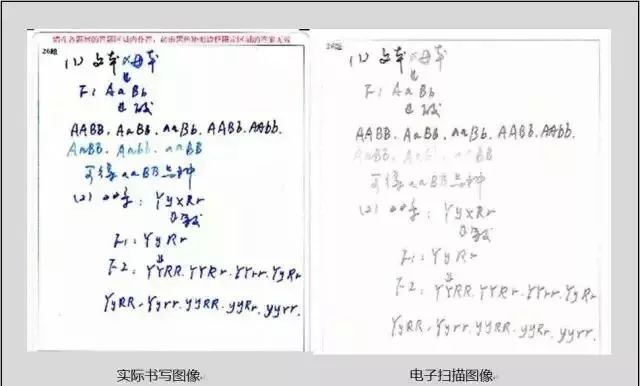 请在各题目的答题区域内作答，超出黑色矩形边框限定区域的答案无效
26题
(1) 父本×母本
↓
F1: AaBb
AABB. AaBb. aaBb. AABb. AAbb.
AaBB. Aabb. aaBB
可得aaBB品种
(2) YyxRr
F1: YyRr
F2: YYRR. YYRr. YYrr. YyRr
YyRR. Yyrr. yyRR. yyRr. yyrr.
实际书写图像
26题
(1) 父本×母本
↓
F1: AaBb
AABB. AaBb. aaBb. AABb. AAbb.
aaBB
可得aaBB品种
(2) YyxRr
F1: YyRr
F2: YYRR. YYRr. YYrr. YyRr
YyRR. Yyrr. yyRR. yyRr. yyrr.
电子扫描图像